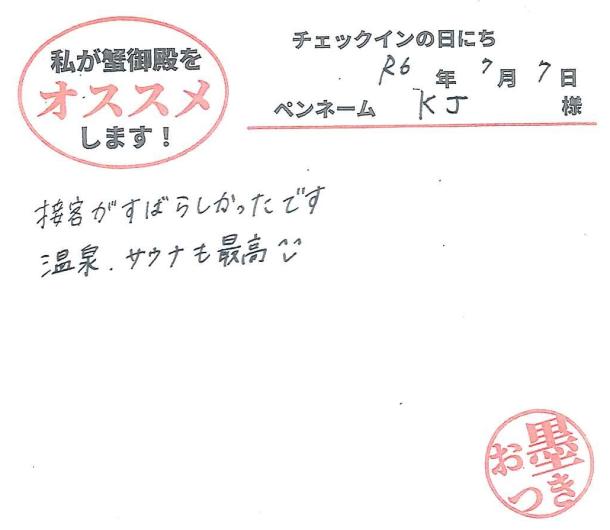 私が蟹御殿を
オススメ
します！
チェックインの日にち
R6年7月7日
ペンネーム KJ 様
接客がすばらしかったです
温泉、サウナも最高
お墨
つき